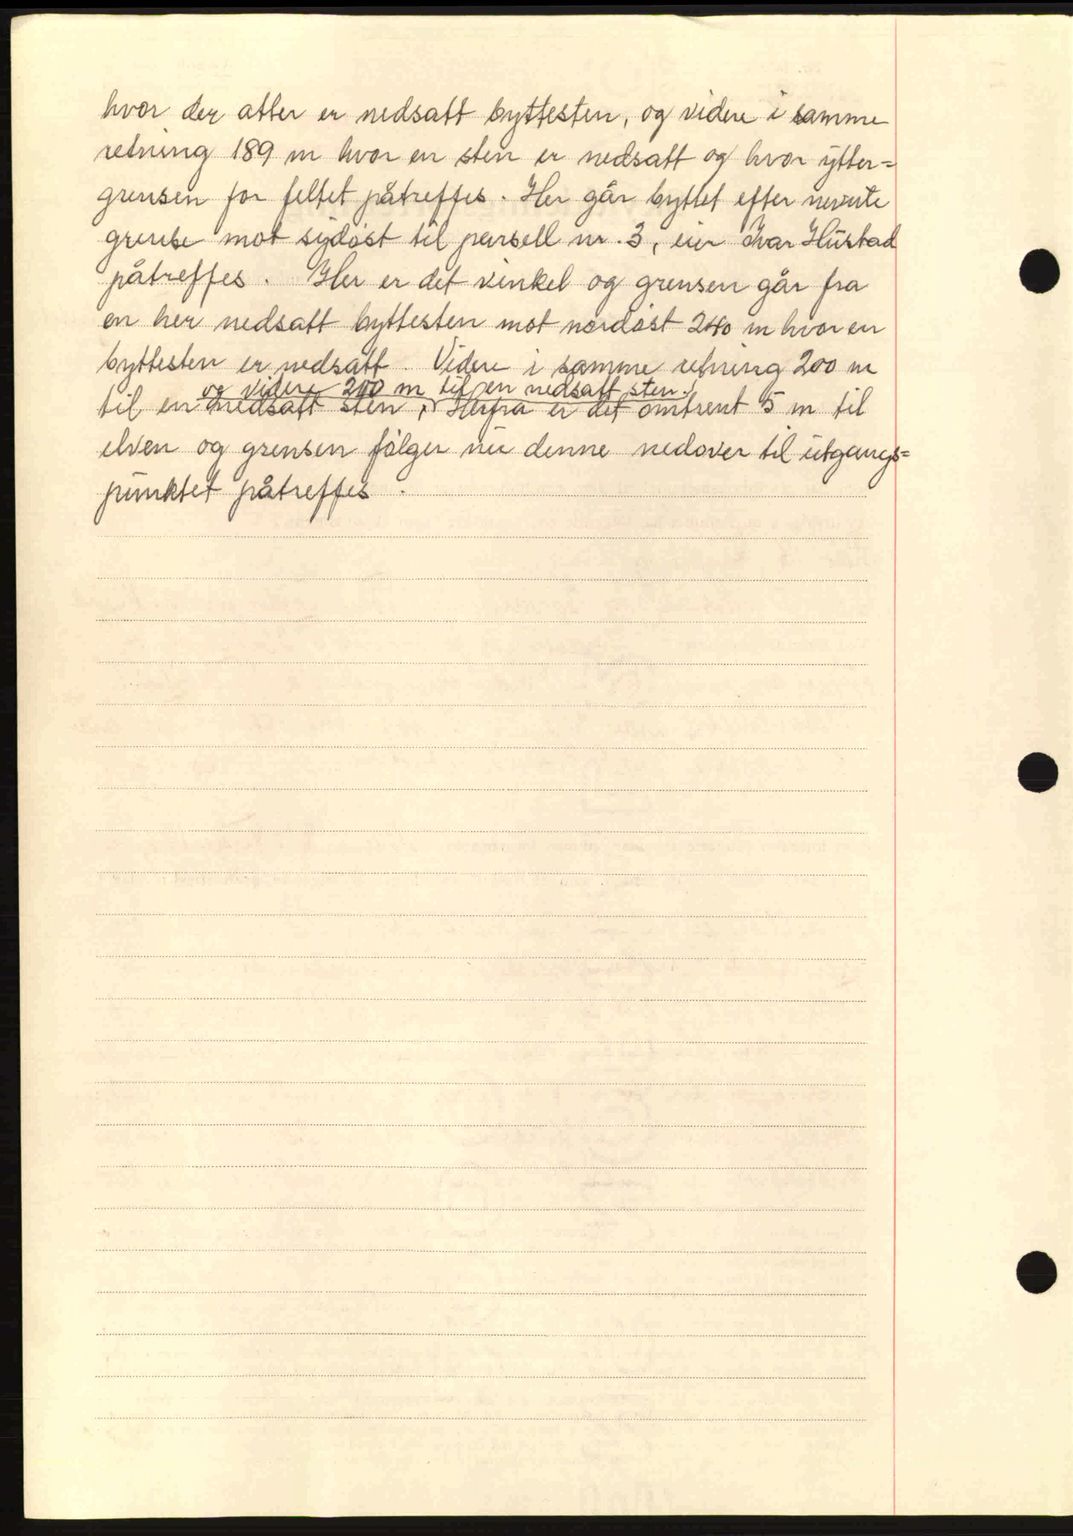 hvor der atter er nedsatt byttesten, og videre i samme
retning 189 m hvor en sten er nedsatt og hvor ytter=
grensen for feltet påtreffes. Her går byttet efter nevnte
grense mot sydøst til parsell nr. 3, eier Ivar Hustad
påtreffes. Her er det vinkel og grensen går fra
en her nedsatt byttesten mot nordøst 240 m hvor en
byttesten er nedsatt. Videre i samme retning 200 m
og videre 200 m til en nedsatt sten.
til en nedsatt sten, Herfra er det omtrent 5 m til
elven og grensen følger nu denne nedover til utgangs=
punktet påtreffes.